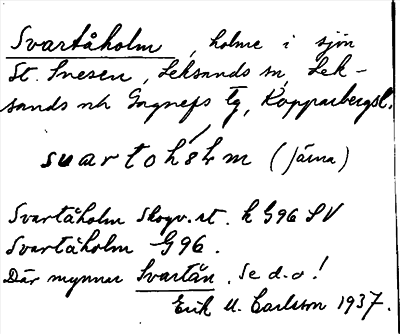 Svartåholm, holme i sjön
St. Snesen, Leksands sn, Lek-
sands och Gagnefs tg, Kopparbergsl.
suartohólm (Järna)
Svartåholm Skogv.st. k G96 SV
Svartåholm G96.
Där mynnar Svartån. Se d.o!
Erik U. Carlsson 1937.